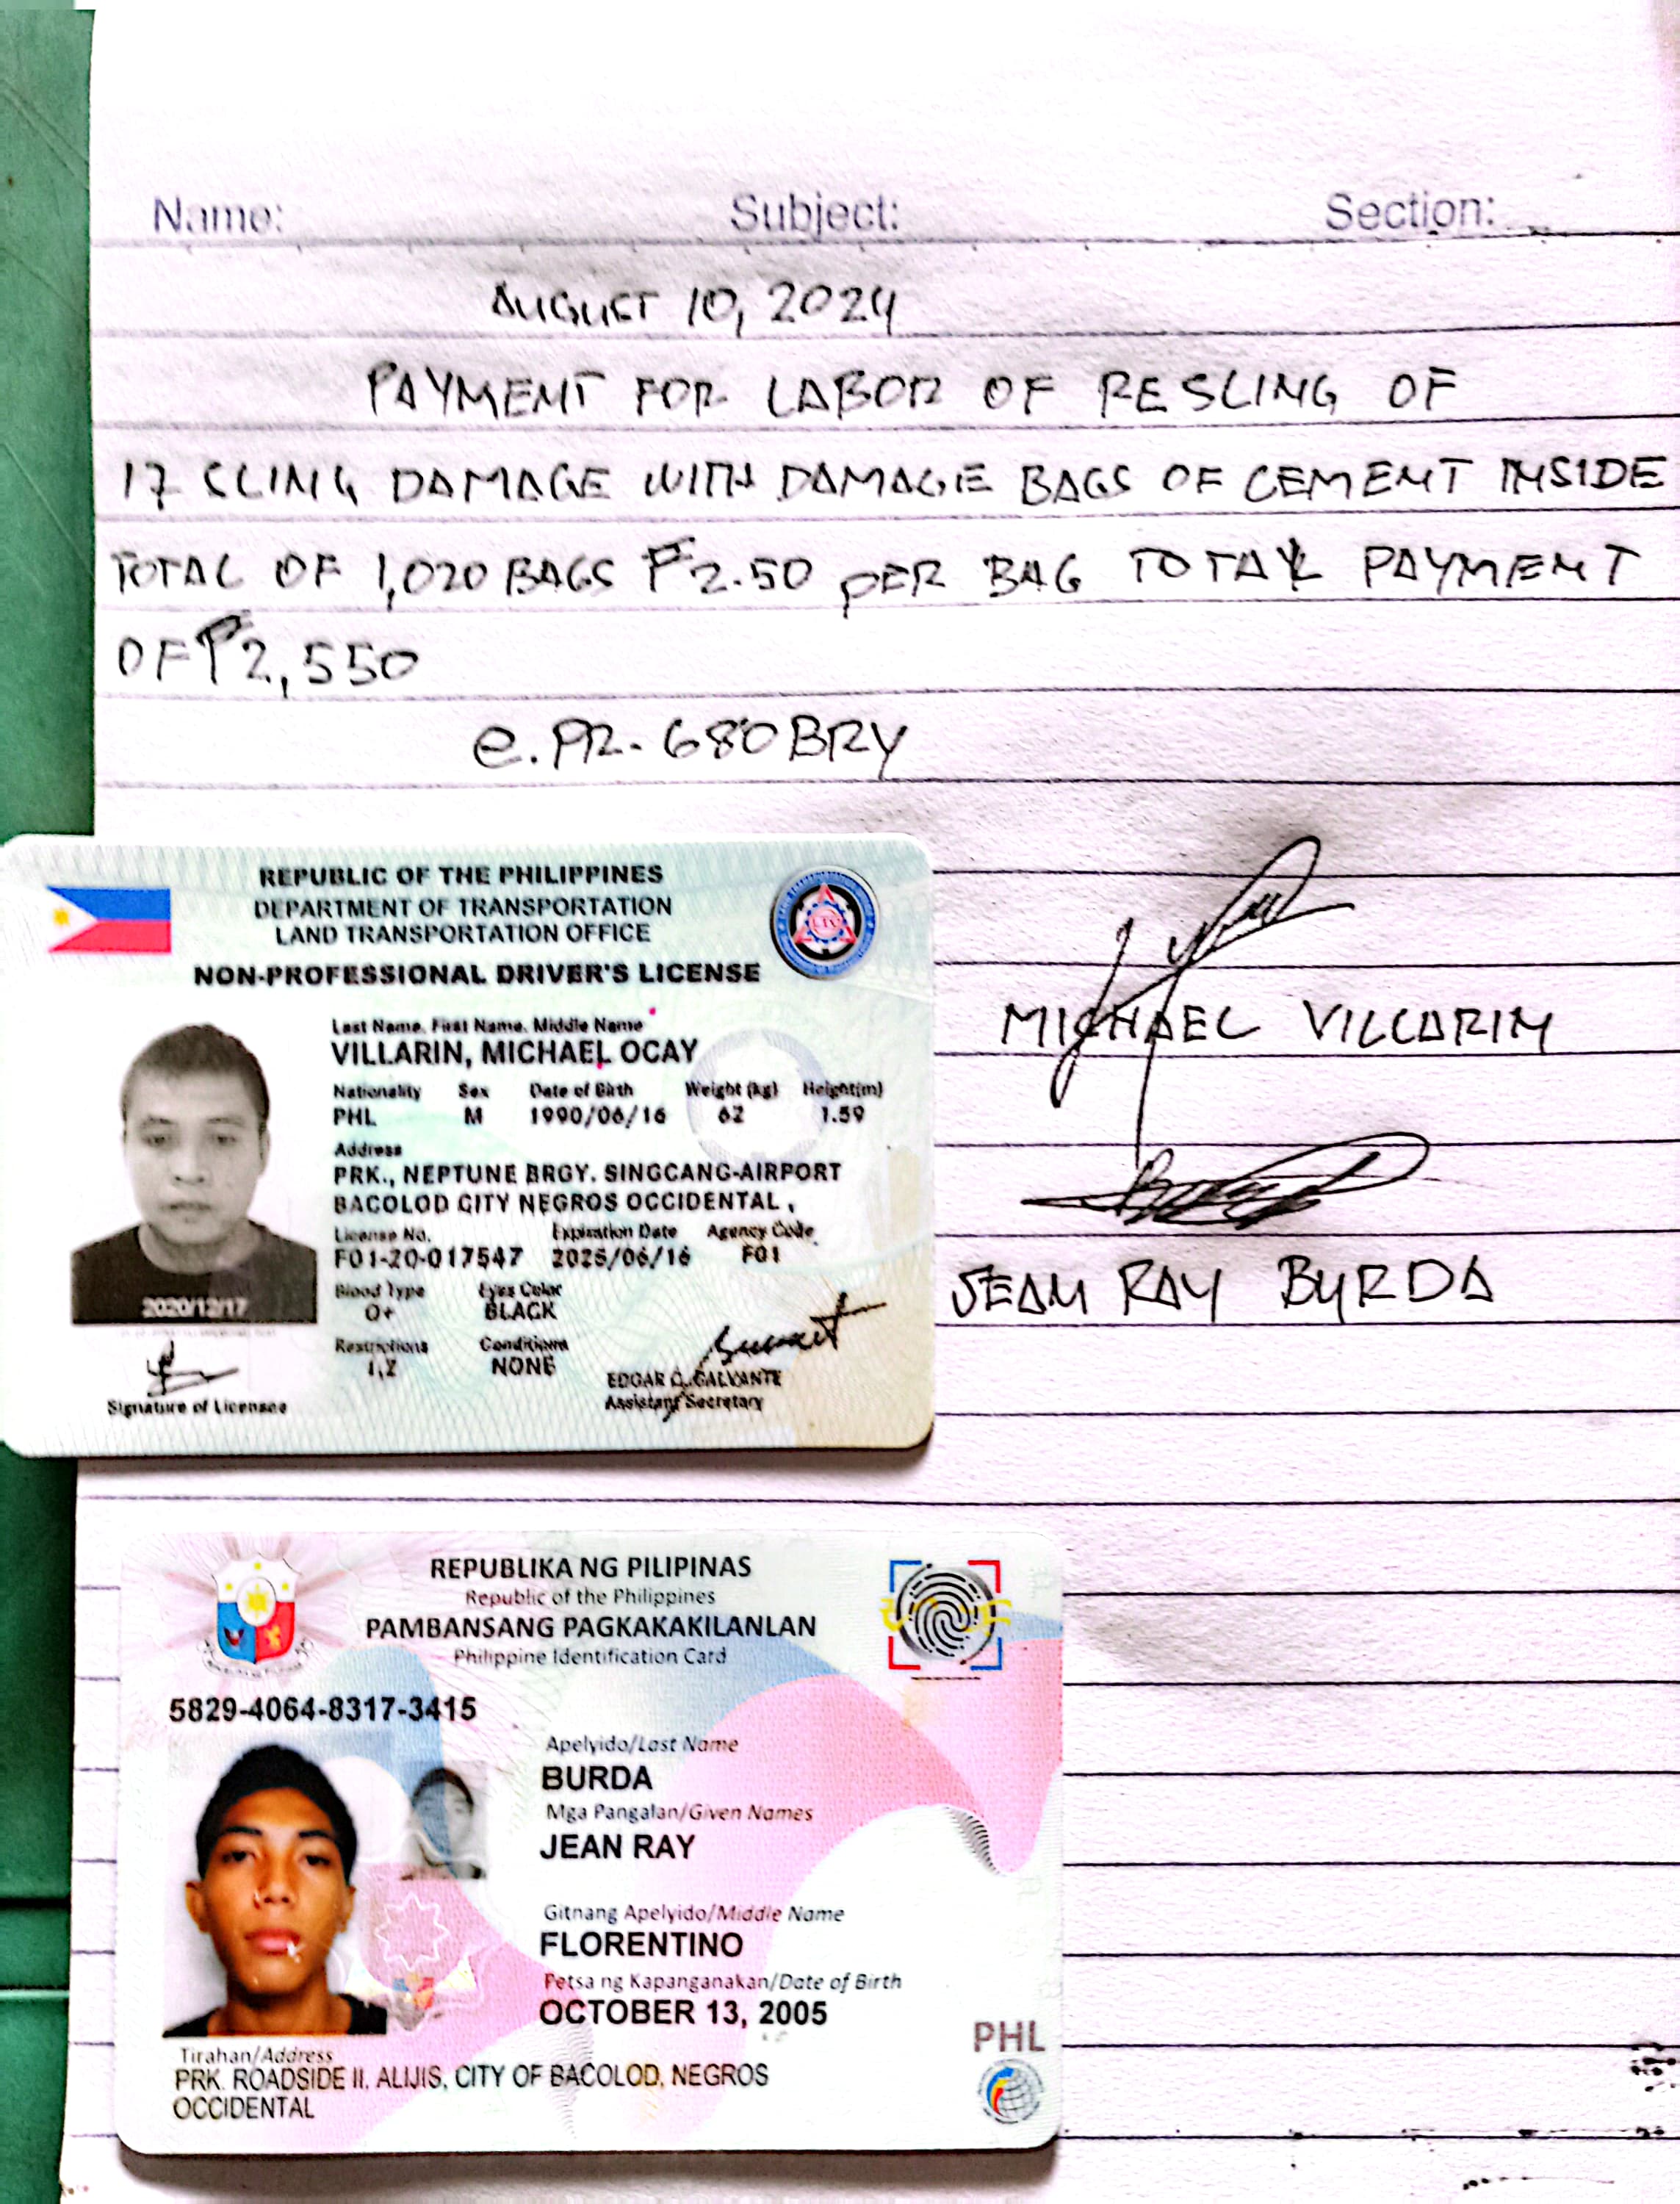 Name: Subject: Section:
AUGUST 10, 2024
PAYMENT FOR LABOR OF RESLING OF
17 SLING DAMAGE WITH DAMAGE BAGS OF CEMENT INSIDE
TOTAL OF 1,020 BAGS ₱2.50 PER BAG TOTAL PAYMENT
OF ₱2,550
e.PR-680BRY
REPUBLIC OF THE PHILIPPINES
DEPARTMENT OF TRANSPORTATION
LAND TRANSPORTATION OFFICE
NON-PROFESSIONAL DRIVER'S LICENSE
Last Name, First Name, Middle Name
VILLARIN, MICHAEL OCAY
Nationality Sex Date of Birth Weight (kg) Height(m)
PHL M 1990/06/16 62 1.59
Address
PRK., NEPTUNE BRGY. SINGCANG-AIRPORT
BACOLOD CITY NEGROS OCCIDENTAL ,
License No. Expiration Date Agency Code
F01-20-017547 2025/06/16 F01
Blood Type Eyes Color
O+ BLACK
Restrictions Conditions
1,2 NONE
2020/12/17
Signature of Licensee
EDGAR C. GALVANTE
Assistant Secretary
MICHAEL VILLARIN
JEAN RAY BURDA
REPUBLIKA NG PILIPINAS
Republic of the Philippines
PAMBANSANG PAGKAKAKILANLAN
Philippine Identification Card
5829-4064-8317-3415
Apelyido/Last Name
BURDA
Mga Pangalan/Given Names
JEAN RAY
Gitnang Apelyido/Middle Name
FLORENTINO
Petsa ng Kapanganakan/Date of Birth
OCTOBER 13, 2005
PHL
Tirahan/Address
PRK. ROADSIDE II, ALIJIS, CITY OF BACOLOD, NEGROS
OCCIDENTAL